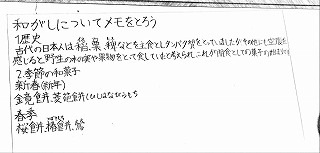 和がしについてメモをとろう
1.歴史
古代の日本人は稲、粟、稗などを主食としタンパク質をとっていましたがその他にも空腹を
感じると野生の木の実や果物をとって食していたと考えられ、これが間食としての菓子の始まりです
2.季節の和菓子
新春(新年)
鏡餅、菱葩餅(ひしはなびらもち)
春季
桜餅、椿餅、鶯